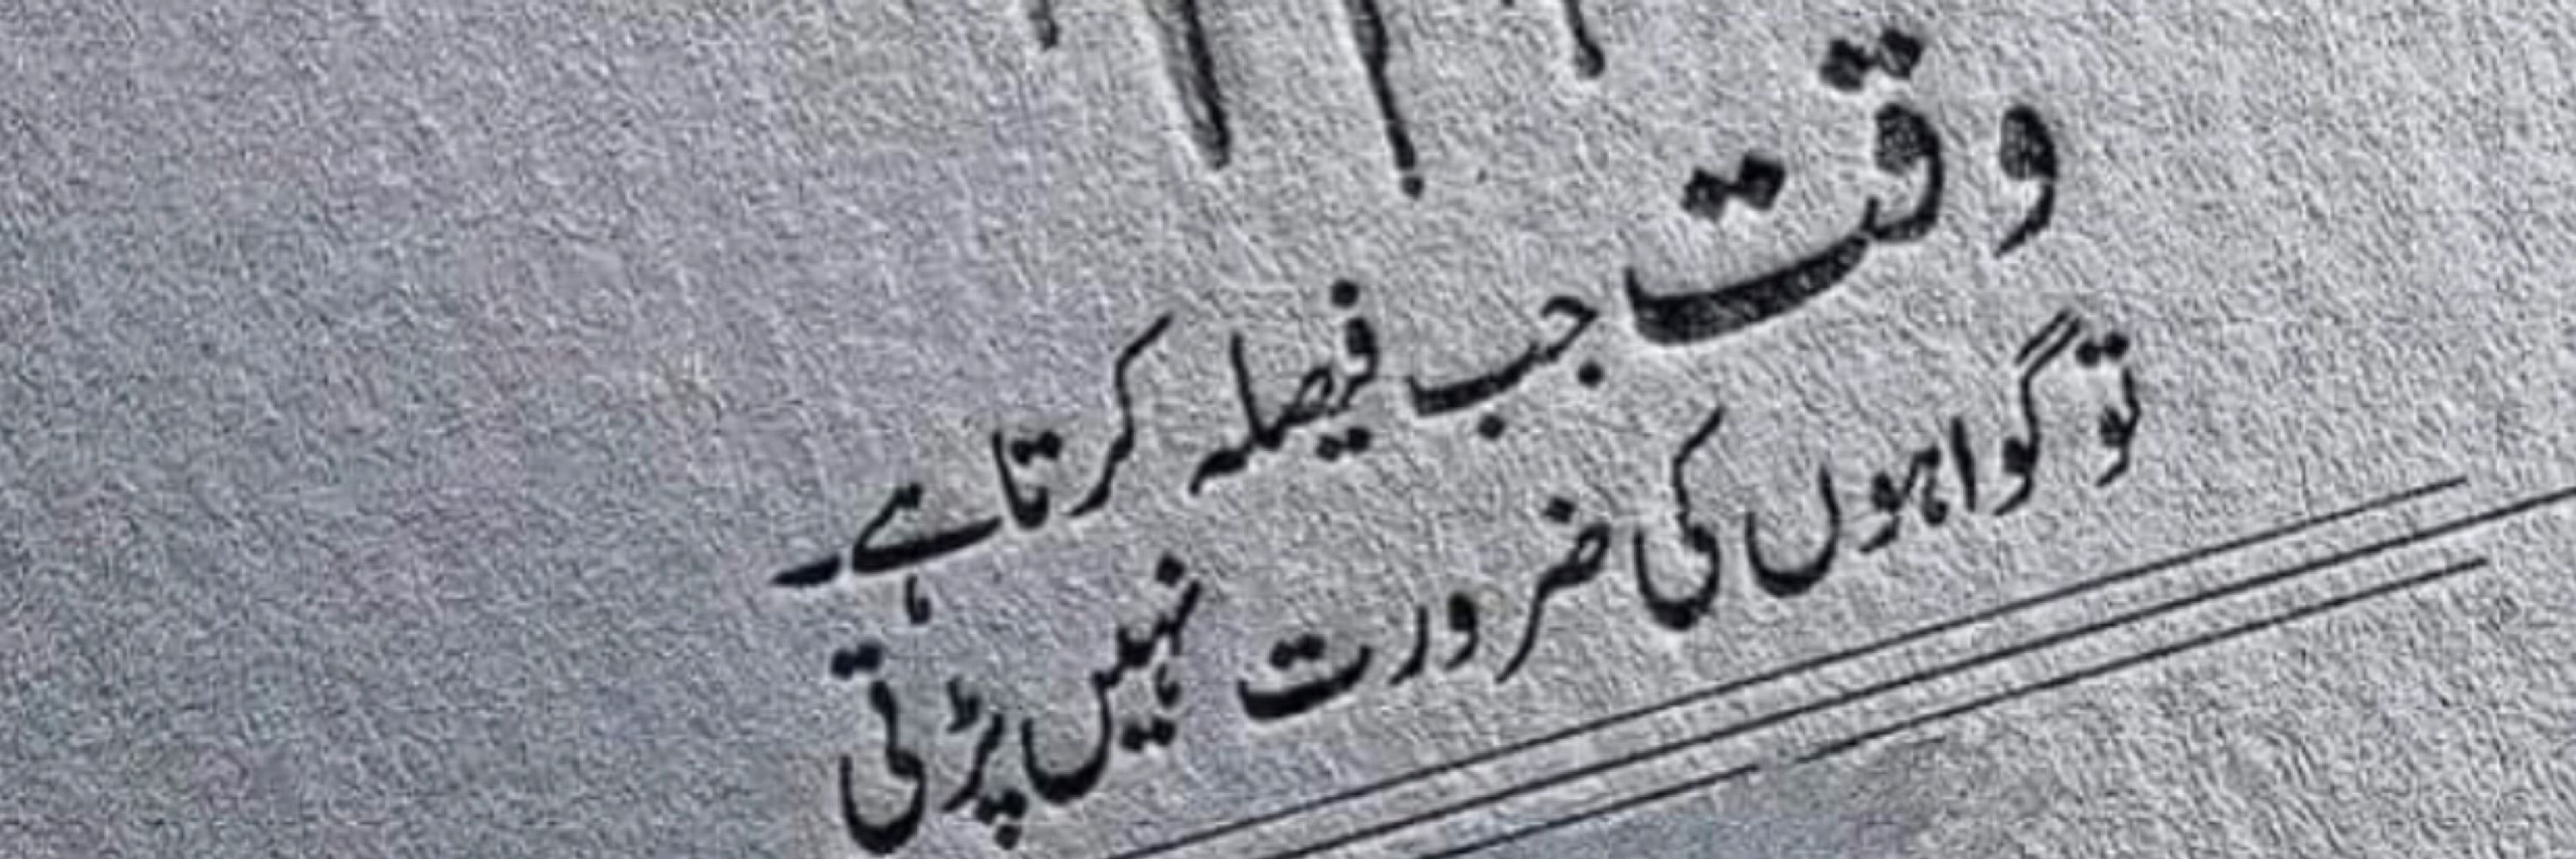 وقت جب فیصلہ کرتا ہے
تو گواہوں کی ضرورت نہیں پڑتی